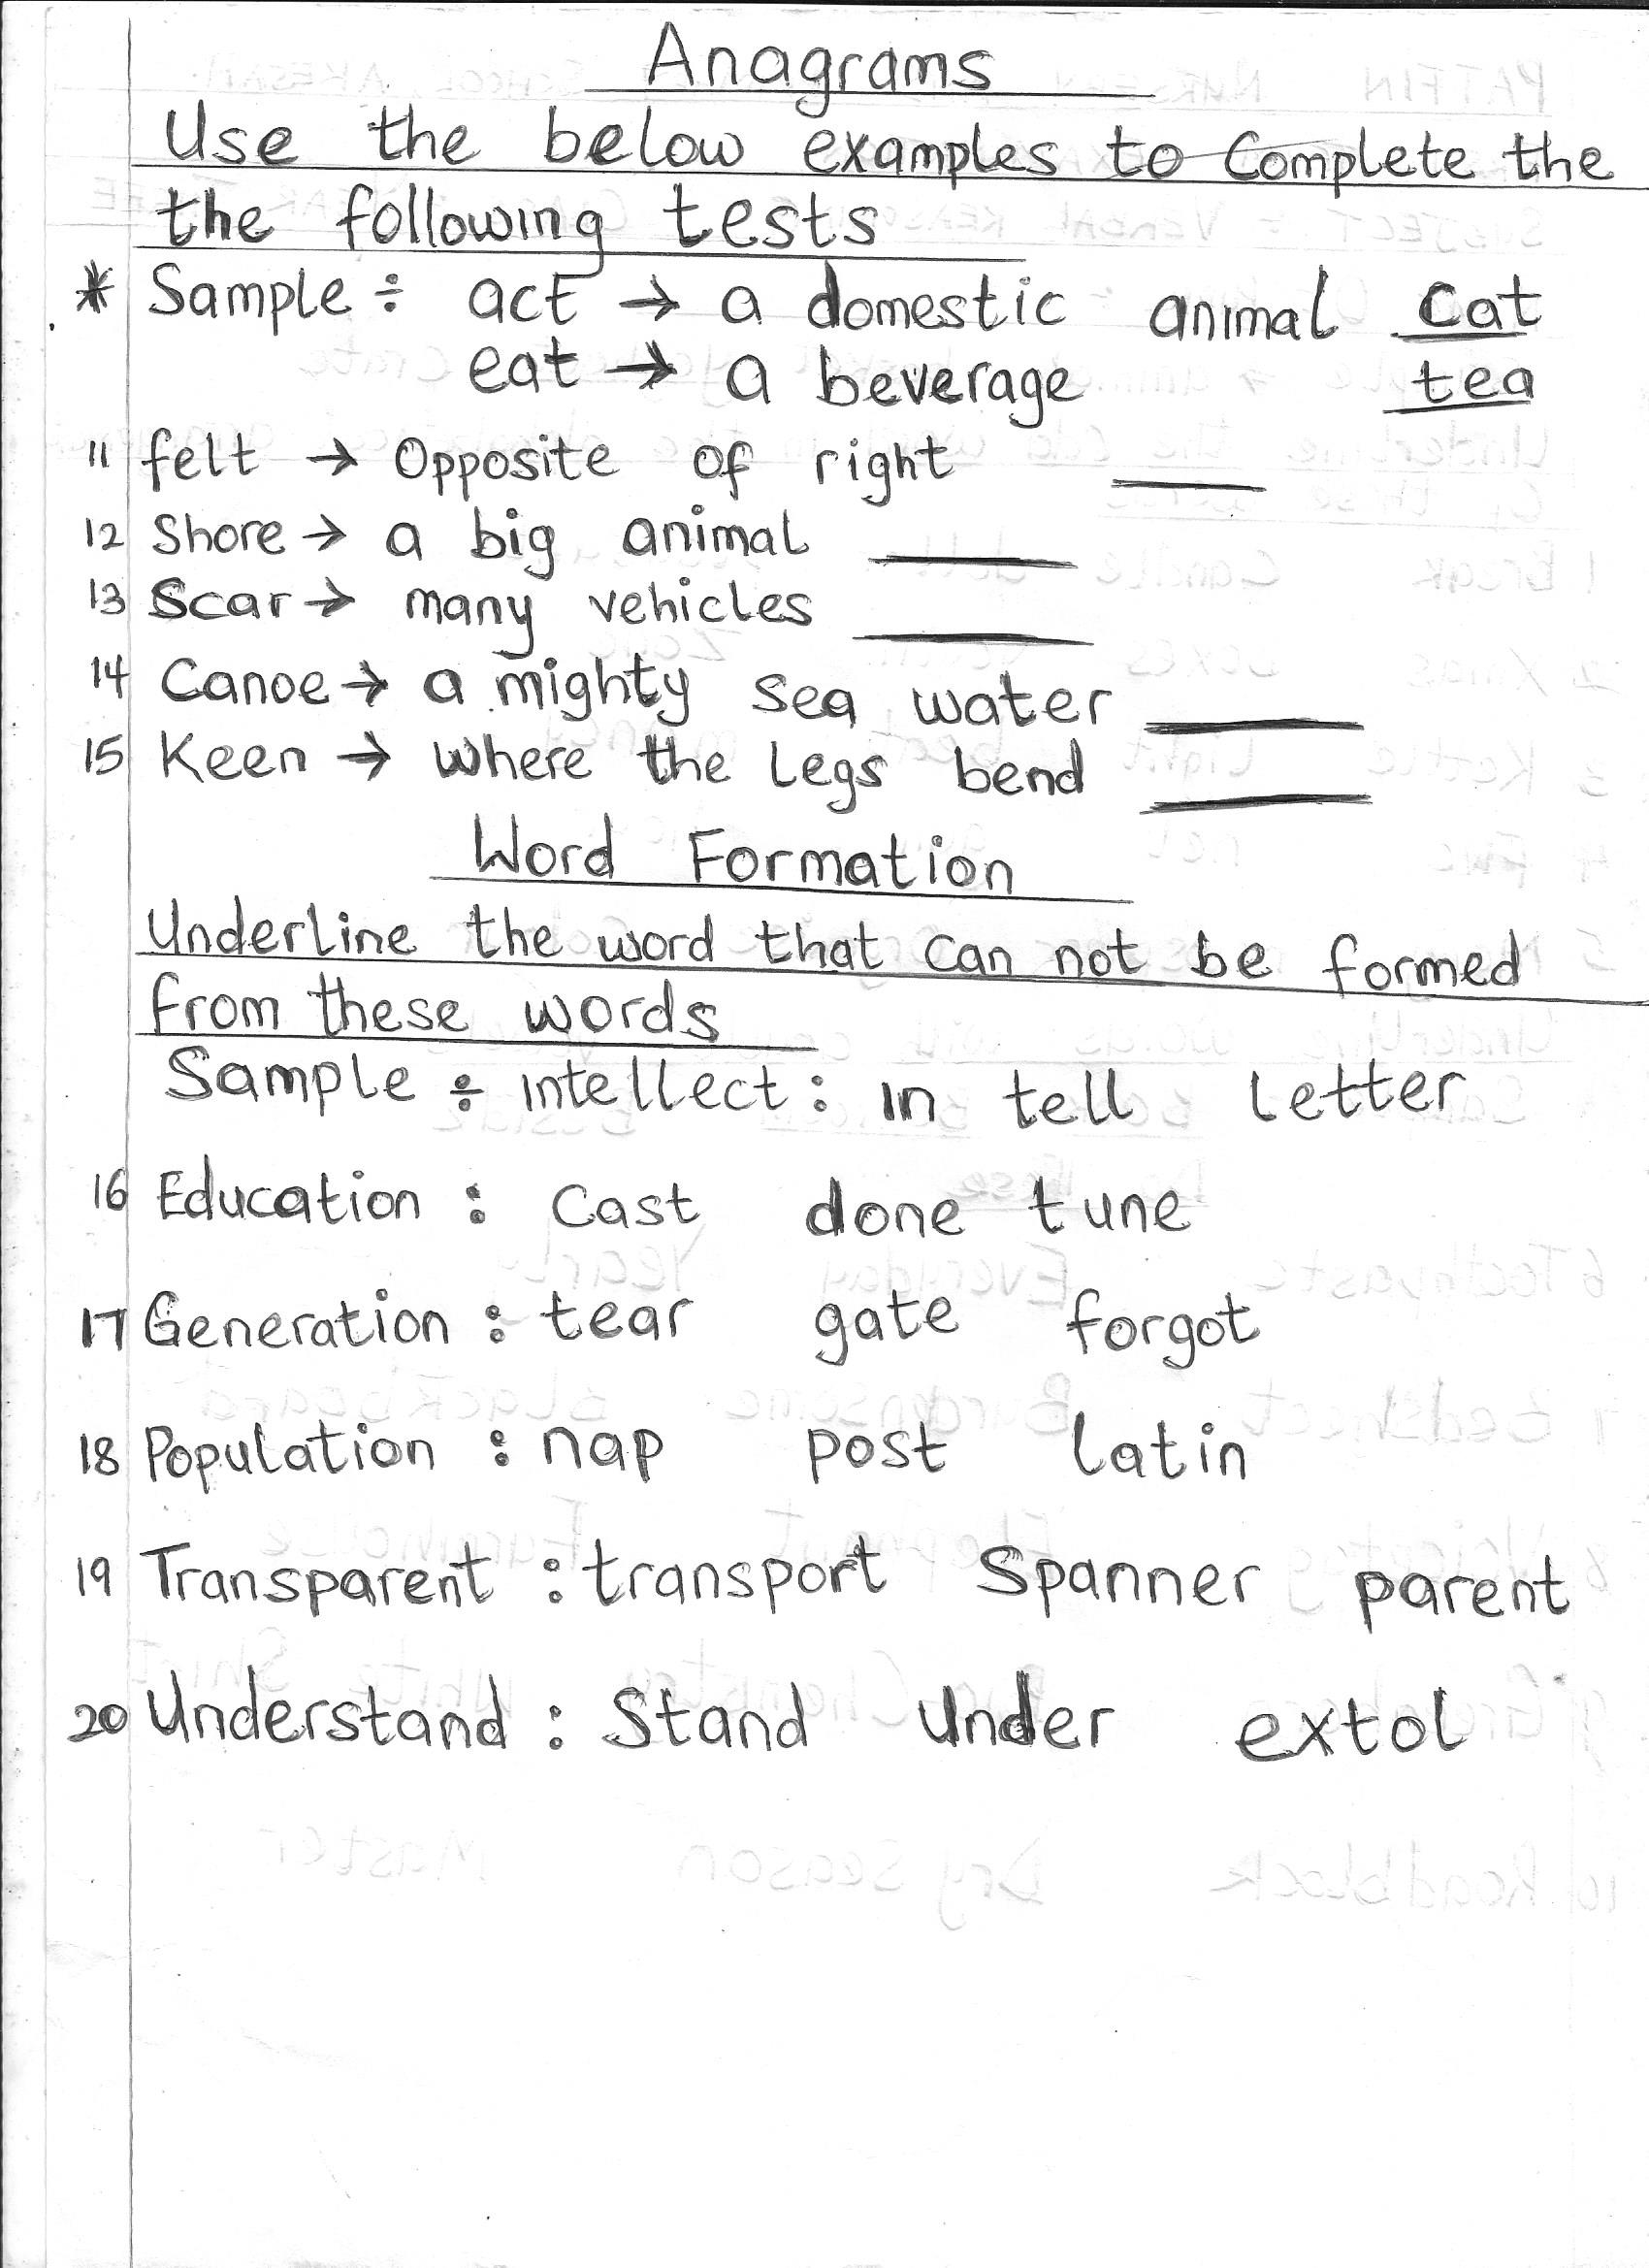 Anagrams
Use the below examples to Complete the
the following tests
* Sample ÷ act → a domestic animal cat
eat → a beverage tea
11 felt → Opposite of right ____
12 Shore → a big animal ____
13 Scar → many vehicles ____
14 Canoe → a mighty sea water ____
15 Keen → where the Legs bend ____
Word Formation
Underline the word that can not be formed
from these words
Sample ÷ intellect : in tell letter
16 Education : Cast done tune
17 Generation : tear gate forgot
18 Population : nap post Latin
19 Transparent : transport Spanner parent
20 Understand : Stand Under extol